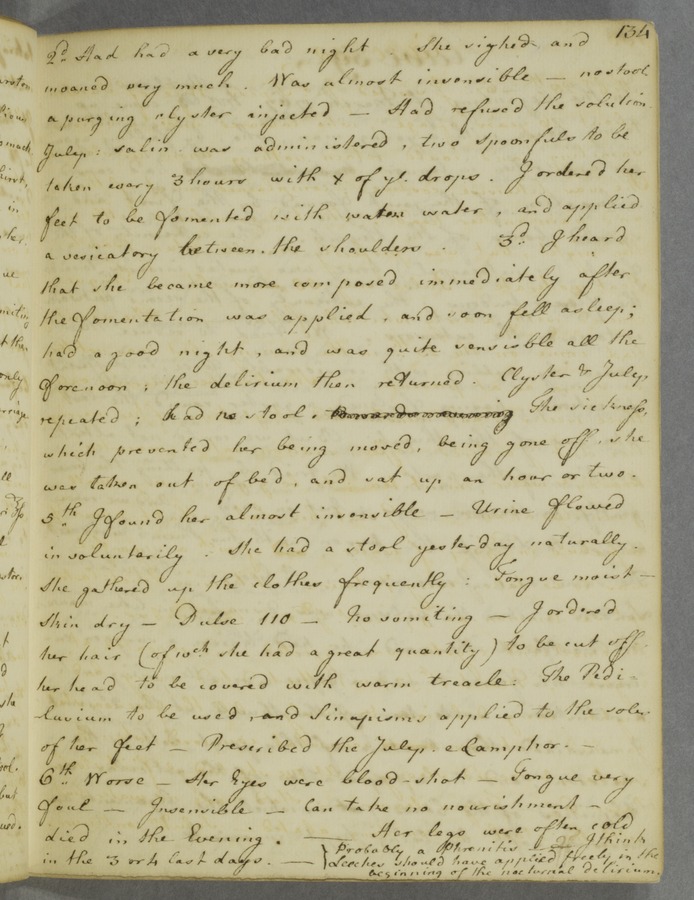 134
2d. Had had a very bad night. She sighed and
moaned very much. Was almost insensible — no stool
a purging clyster injected — Had refused the solution.
Julep: salin. was administered, two spoonfuls to be
taken every 3 hours with x of ye. drops. I ordered her
feet to be fomented with water, and applied
a vesicatory between the shoulders. 3d. I heard
that she became more composed immediately after
the fomentation was applied, and soon fell asleep;
had a good night, and was quite sensible all the
forenoon; the delirium then returned. Clyster & Julep
repeated; had no stool. The sickness,
which prevented her being moved, being gone off, she
was taken out of bed, and sat up an hour or two.
5th I found her almost insensible — Urine flowed
involunterily. She had a stool yesterday naturally.
She gathered up the clothes frequently: Tongue moist —
Skin dry — Pulse 110 — No vomiting — I ordered
her hair (of wch she had a great quantity) to be cut off
her head to be covered with warm treacle: The Pedi-
luvium to be used, and Sinapisms applied to the soles
of her feet — Prescribed the Julep. e Camphor. —
6th Worse — Her Eyes were blood-shot — Tongue very
foul — Insensible — Can take no nourishment —
died in the Evening. — Her legs were often cold
in the 3 or 4 last days. —
Probably a Phrenitis I think
Leeches should have applied freely in the
beginning of the nocturnal delirium.